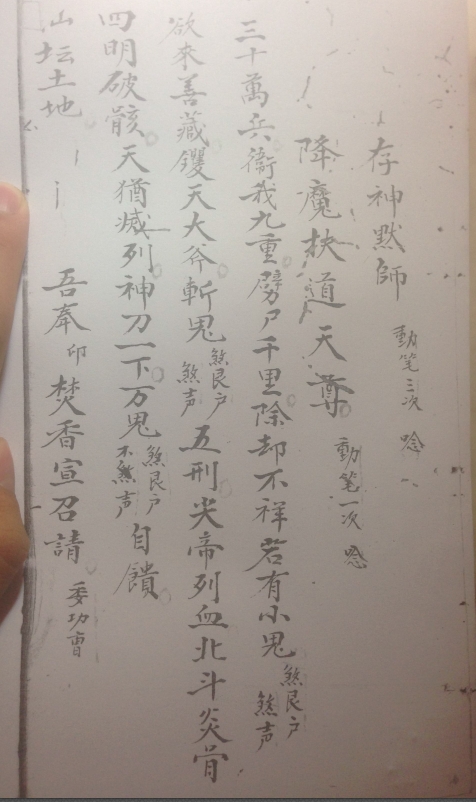 存神黙師 動笔三次 唸
降魔扶道天尊 動笔一次 唸
三十萬兵衛我九重劈尸千里除却不祥若有小鬼 煞艮户 煞声
欲來善藏钁天大斧斬鬼 煞艮户 煞声 五刑尖帝列血北斗炎骨
四明破骸天猶滅列神刀一下万鬼 煞艮户 不煞声 自饋
山坛土地 吾奉 印 焚香宣召請 委功曹